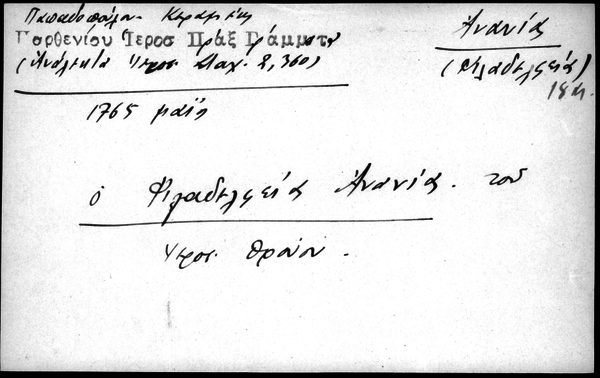 Παπαδοπούλου Κεραμέως
Παρθενίου Ἱεροσ Πράξ Γράμματ
(Ἀνάλεκτα Ἱεροσ. Σταχ. 2, 360)
Ἀνανίας
(Φιλαδελφείας)
18 αι.
1765 μαΐῳ
ὁ Φιλαδελφείας Ἀνανίας. τοῦ
Ἱεροσ. θρόνου.